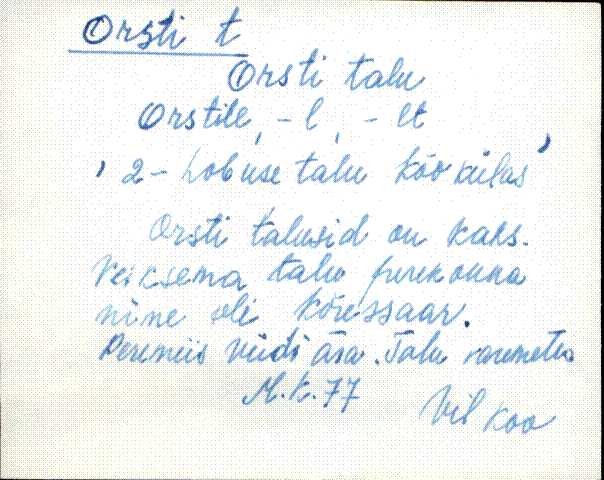 Orsti t
Orsti talu
Orstile, -l, -lt
, 2-hobuse talu Kõo külas'
Orsti talusid on kaks.
Veiksema talu perekonna
nime oli Kõressaar.
Peremiis viidi ära. Talu varemetes
M.K.77
Vil Koo